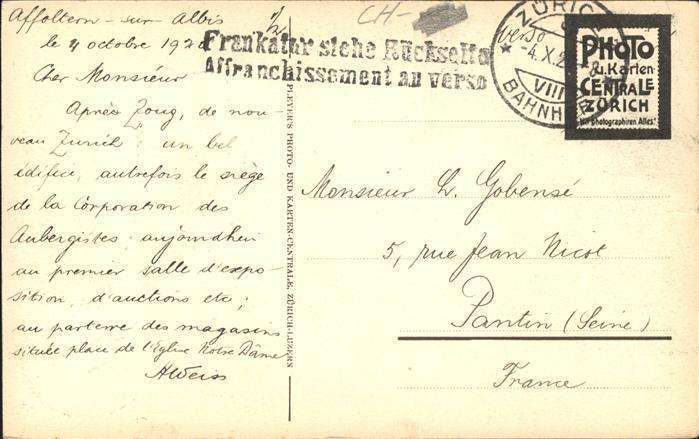 Affoltern - sur - Albis
le 4 octobre 192
Cher Monsieur
Après Zoug, de nou-
veau Zurich: un bel
édifice, autrefois le siège
de la Corporation des
Aubergistes: aujourdhui
au premier salle d'expo-
sition, d'auctions etc;
au parterre des magasins
située place de l'Eglise Notre Dâme
AWeiss
CH-
Frankatur siehe Rückseite
Affranchissement au verso
verso
ZÜRICH
-4.X.2
VIII
BAHNH
PHOTO
u. Karten
CENTRALE
ZÜRICH
Wir photographiren Alles!
PLEYER'S PHOTO- UND KARTEN-CENTRALE, ZÜRICH-LUZERN
Monsieur L. Gobensé
5, rue Jean Nicot
Pantin (Seine)
France